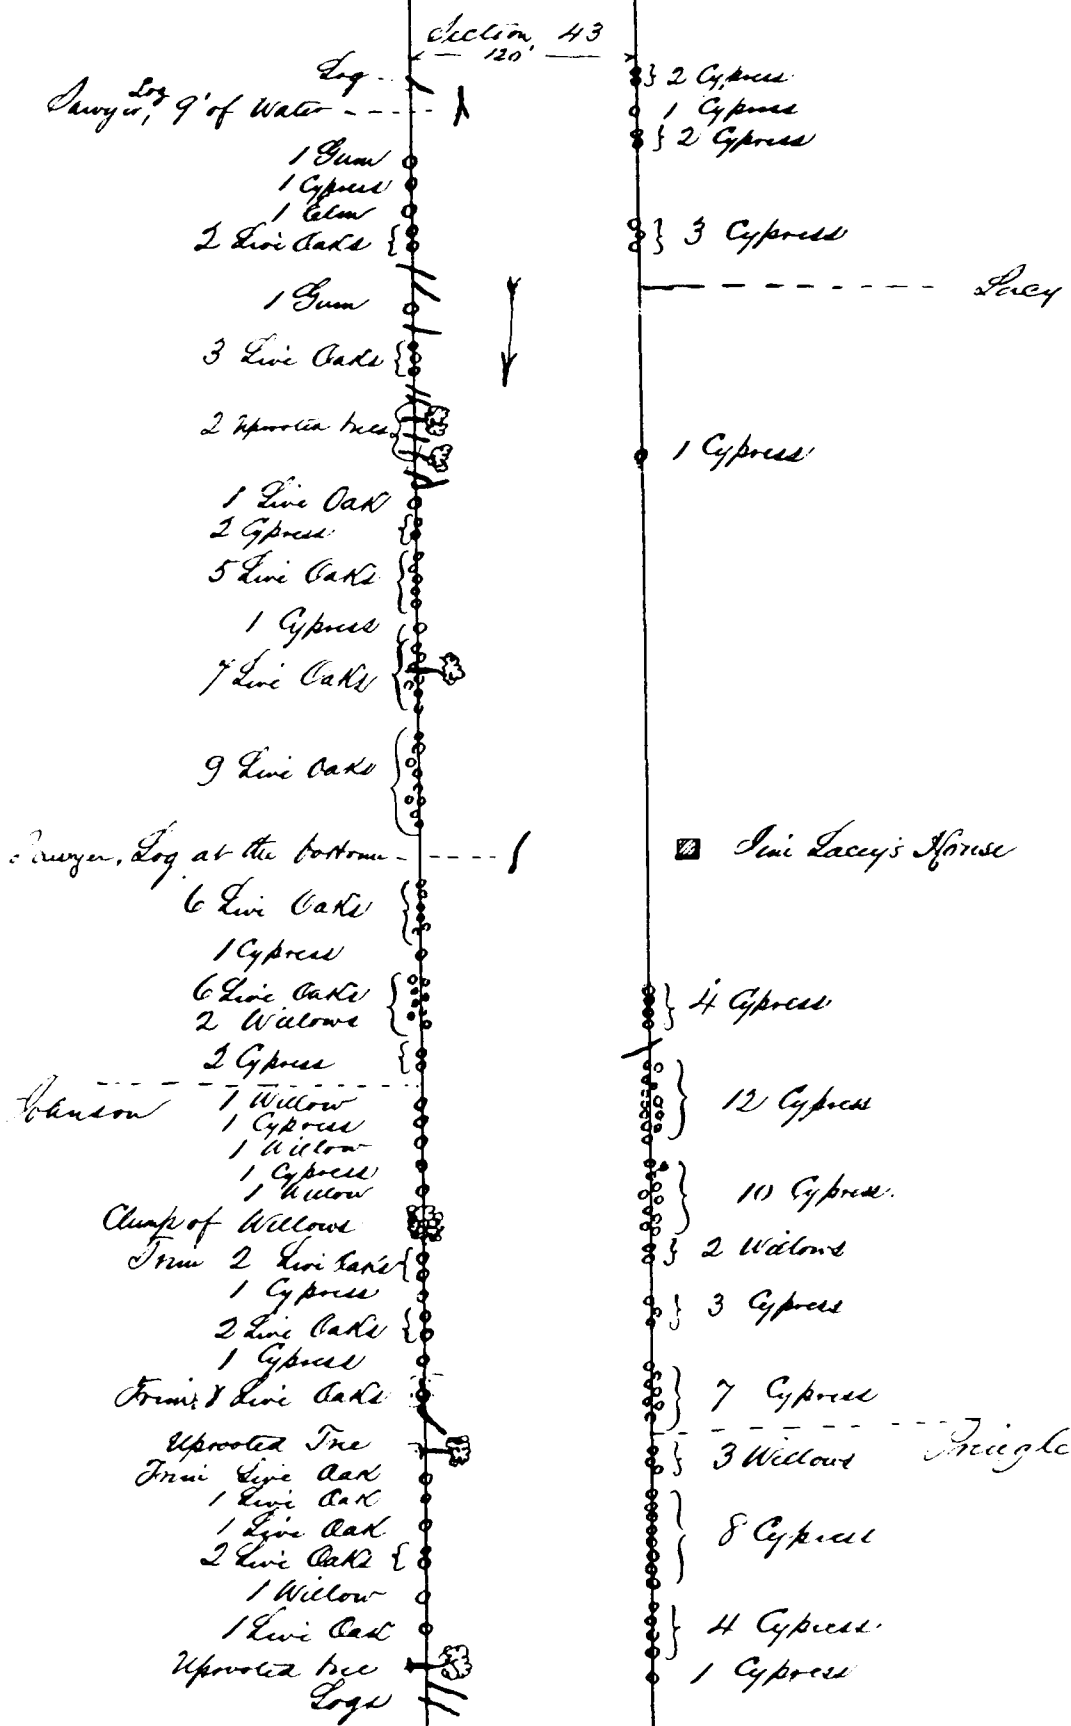 Section 43
120'
Log
Sawyer, Log 9' of Water
1 Gum
1 Cypress
1 Elm
2 Live Oaks
1 Gum
3 Live Oaks
2 Uprooted trees
1 Live Oak
2 Cypress
5 Live Oaks
1 Cypress
7 Live Oaks
9 Live Oaks
Sawyer, Log at the bottom
6 Live Oaks
1 Cypress
6 Live Oaks
2 Willows
2 Cypress
Johnson
1 Willow
1 Cypress
1 Willow
1 Cypress
1 Willow
Clump of Willows
Trim 2 Live Oaks
1 Cypress
2 Live Oaks
1 Cypress
Trim 8 Live Oaks
Uprooted Tree
Trim Live Oak
1 Live Oak
1 Live Oak
2 Live Oaks
1 Willow
1 Live Oak
Uprooted tree
Logs
2 Cypress
1 Cypress
2 Cypress
3 Cypress
Lacy
1 Cypress
Jim Lacey's House
4 Cypress
12 Cypress
10 Cypress.
2 Willows
3 Cypress
7 Cypress
Pringle
3 Willows
8 Cypress
4 Cypress
1 Cypress